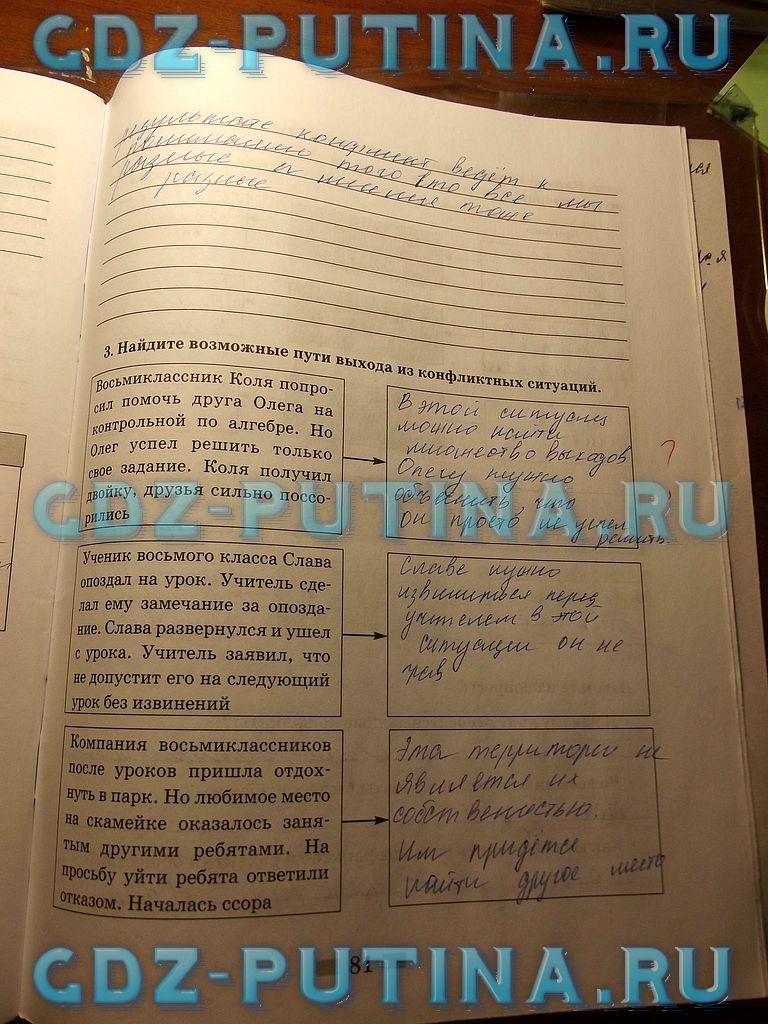 GDZ-PUTINA.RU
конфликт ведёт к
пониманию того что все мы
разные и мнения тоже
разные
3. Найдите возможные пути выхода из конфликтных ситуаций.
Восьмиклассник Коля попро-
сил помочь друга Олега на
контрольной по алгебре. Но
Олег успел решить только
свое задание. Коля получил
двойку, друзья сильно поссо-
рились
В этой ситуации
можно найти
множество выходов
Олегу нужно
объяснить, что
он просто не успел
решить
?
GDZ-PUTINA.RU
Ученик восьмого класса Слава
опоздал на урок. Учитель сде-
лал ему замечание за опозда-
ние. Слава развернулся и ушел
с урока. Учитель заявил, что
не допустит его на следующий
урок без извинений
Славе нужно
извиниться перед
учителем в этой
ситуации он не
прав
Компания восьмиклассников
после уроков пришла отдох-
нуть в парк. Но любимое место
на скамейке оказалось заня-
тым другими ребятами. На
просьбу уйти ребята ответили
отказом. Началась ссора
Эта территория не
является их
собственностью.
Им придётся
найти другое место
81
GDZ-PUTINA.RU